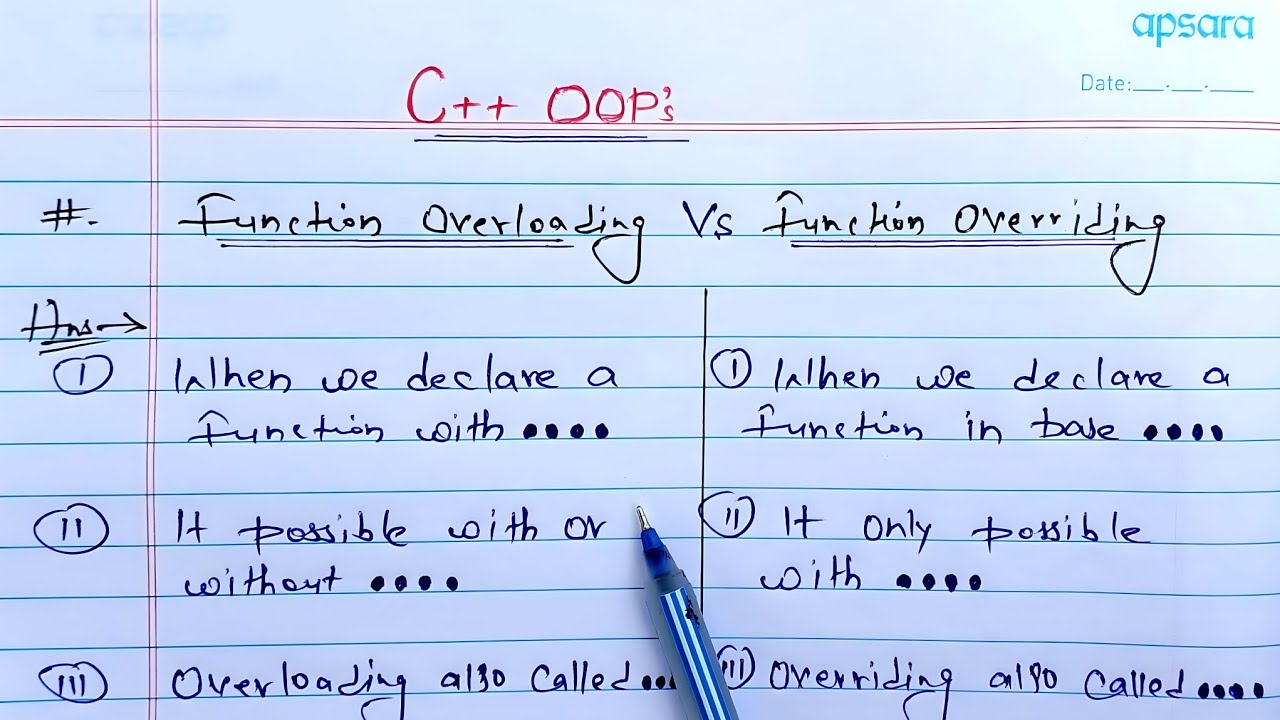 apsara
Date:__.__.___
C++ OOP's
#. Function Overloading Vs Function Overriding
Ans→
(I) When we declare a
function with ••••
(II) It possible with or
without ••••
(III) Overloading also called •••
(I) When we declare a
function in base ••••
(II) It only possible
with ••••
(III) Overriding also called ••••